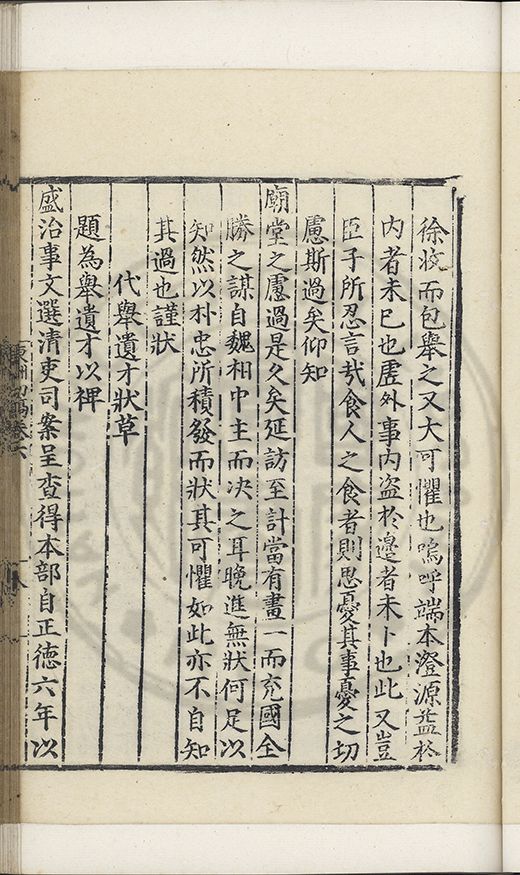 徐收而包舉之又大可懼也嗚呼端本澄源蓋於
内者未巳也虛外事内盗於邉者未卜也此又豈
臣子所忍言㢤食人之食者則思憂其事憂之切
慮斯過矣仰知
廟堂之慮過是久矣延訪至計當有畫一而充國全
勝之謀自魏相中主而決之耳晚進無狀何足以
知然以朴忠所積發而狀其可懼如此亦不自知
其過也謹狀
代舉遺才狀草
題為舉遺才以裨
盛治事文選清吏司案呈查得本部自正徳六年以